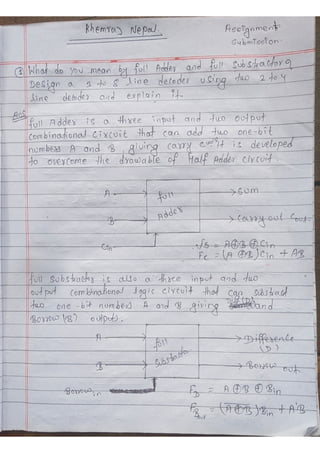 Rhemraj Nepal
Assignment
Submission
③ What do you mean by full Adder and full Substractor?
Design a 3 to 8 line decoder using two 2 to 4
line decoder and explain it.
Ans
full Adder is a three input and two output
combinational circuit that can add two one-bit
numbers A and B giving carry it is developed
to overcome the drawable of Half Adder circuit
A
full
Adder
Sum
B
carry out Cout
Cin
FS = A⊕B⊕Cin
Fc = (A⊕B)Cin + AB
full Substractor is also a three input and two
output combinational logic circuit that can substract
two one-bit numbers A and B giving (D) and
Borrow (B) outputs.
A
full
Substractor
Difference
(D)
B
Borrow out
Borrow in
FD = A⊕B⊕Bin
FBout = (A⊕B)Bin + A'B